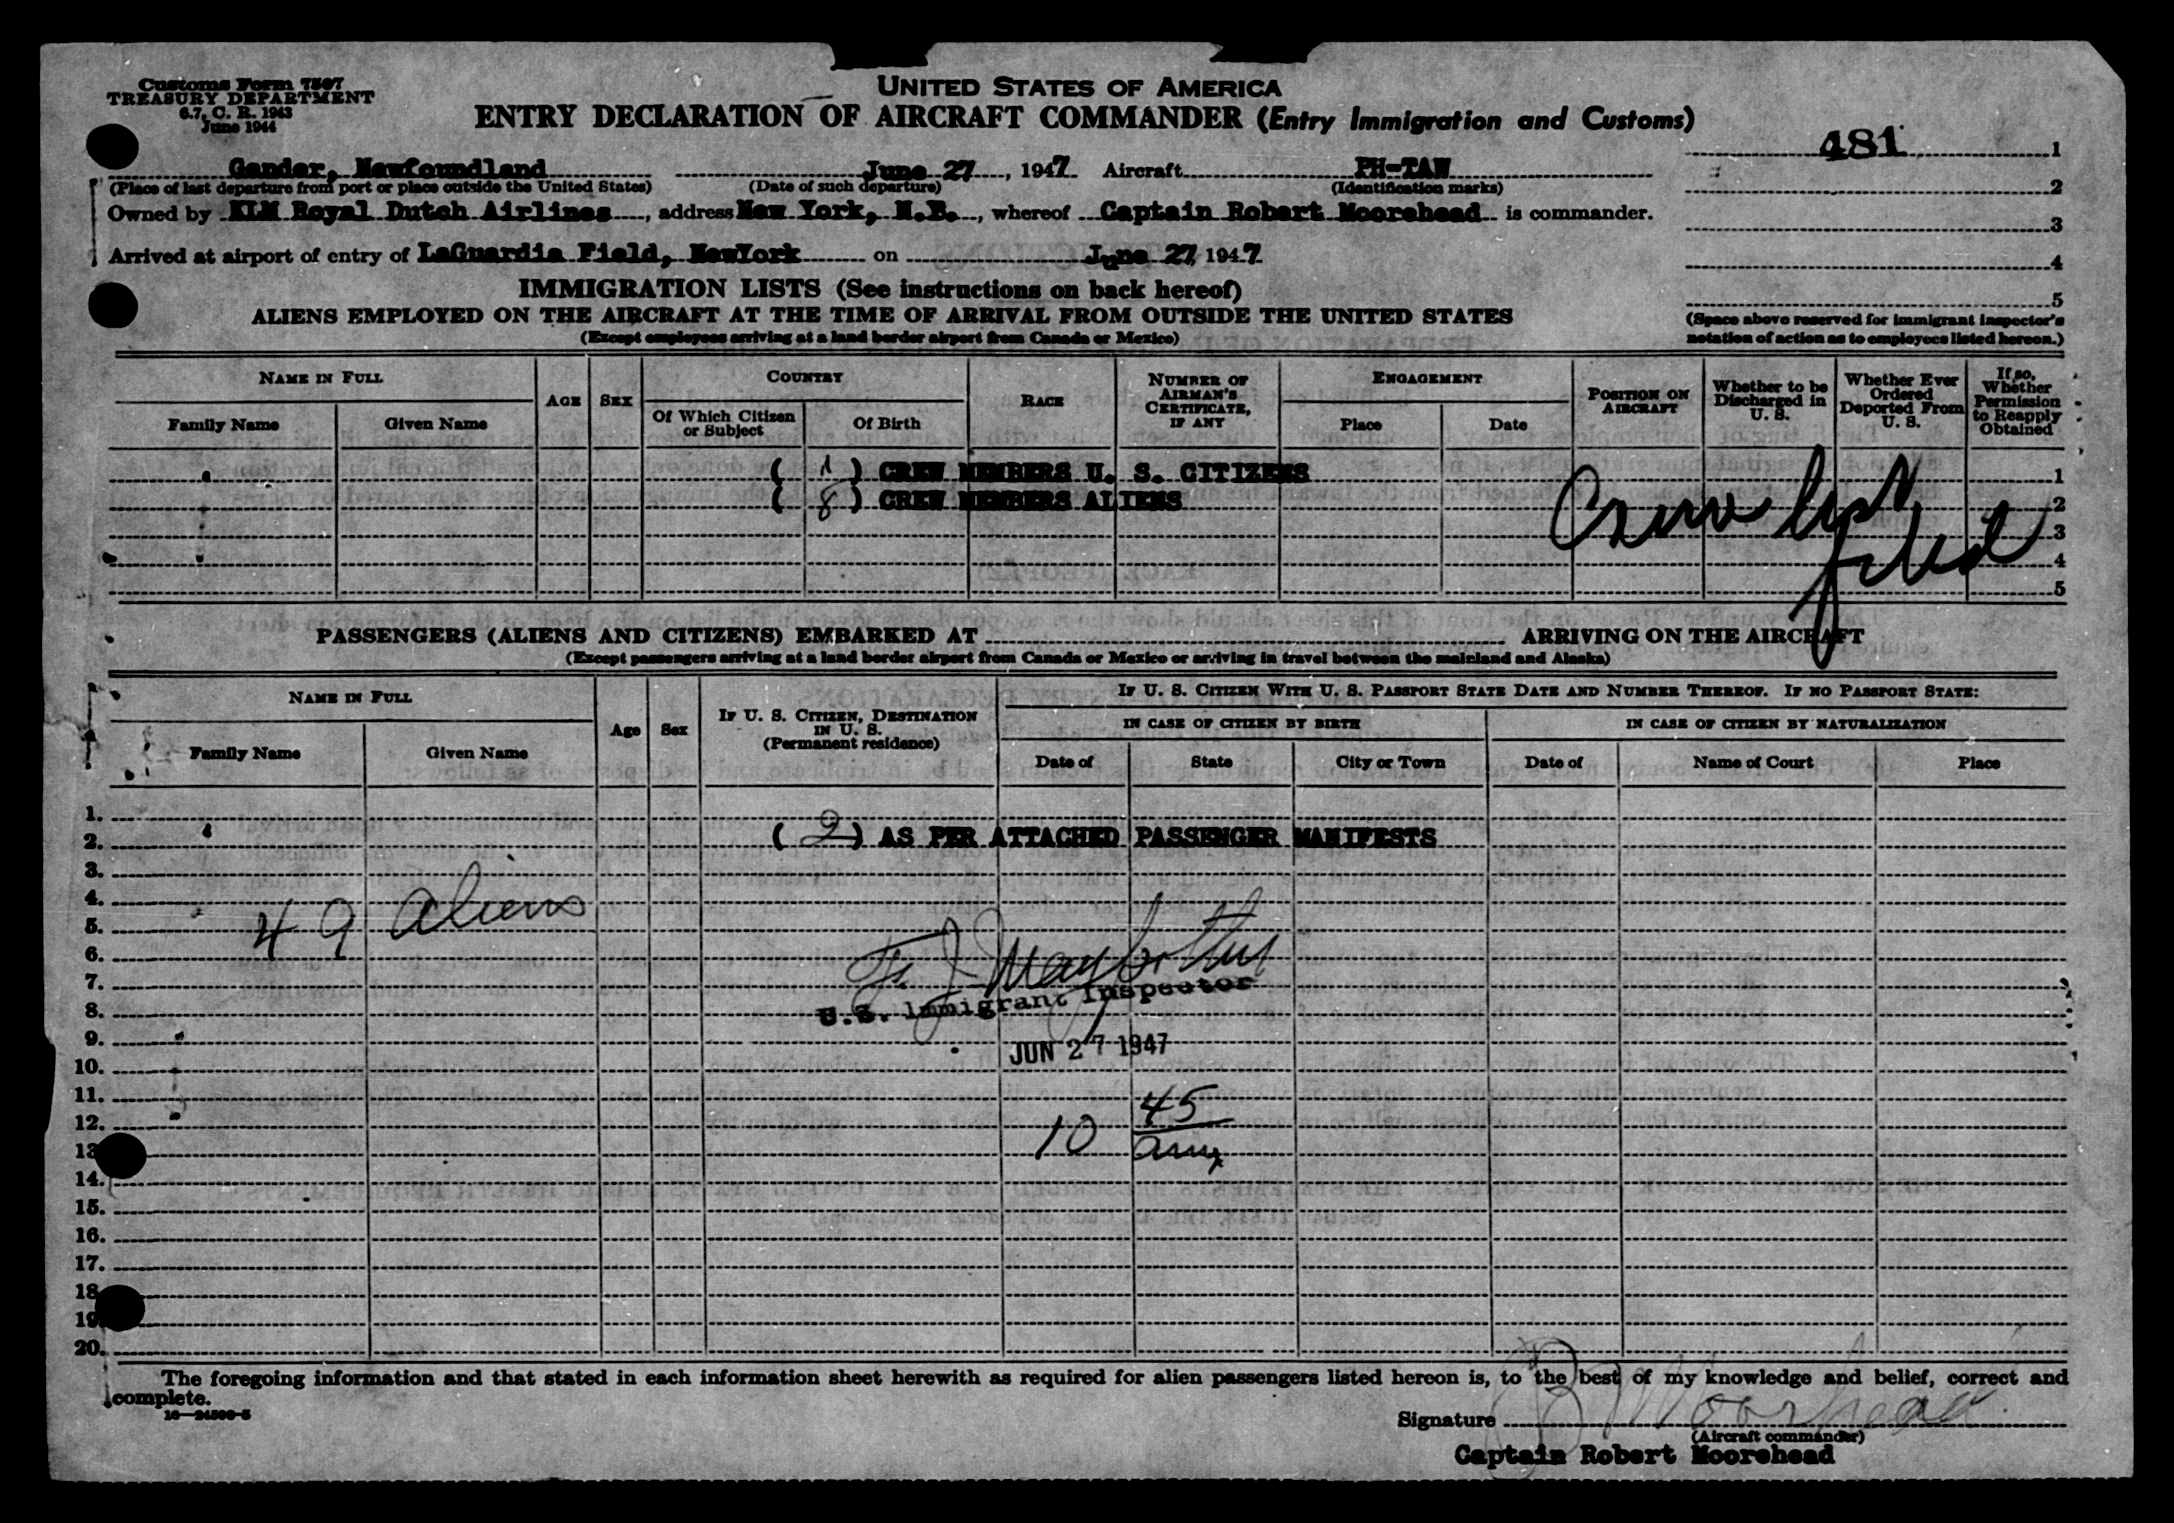 Customs Form 7507
TREASURY DEPARTMENT
6.7, C. R. 1943
June 1944
UNITED STATES OF AMERICA
ENTRY DECLARATION OF AIRCRAFT COMMANDER (Entry Immigration and Customs)
481 1
Gander, Newfoundland June 27, 1947 Aircraft PH-TAW
(Place of last departure from port or place outside the United States) (Date of such departure) (Identification marks) 2
Owned by KLM Royal Dutch Airlines, address New York, N.Y., whereof Captain Robert Moorehead is commander.
3
Arrived at airport of entry of LaGuardia Field, NewYork on June 27, 1947
4
IMMIGRATION LISTS (See instructions on back hereof)
5
ALIENS EMPLOYED ON THE AIRCRAFT AT THE TIME OF ARRIVAL FROM OUTSIDE THE UNITED STATES
(Except employees arriving at a land border airport from Canada or Mexico)
(Space above reserved for immigrant inspector's
notation of action as to employees listed hereon.)
NAME IN FULL
Family Name Given Name
AGE SEX
COUNTRY
Of Which Citizen or Subject Of Birth
RACE
NUMBER OF AIRMAN'S CERTIFICATE, IF ANY
ENGAGEMENT
Place Date
POSITION ON AIRCRAFT
Whether to be Discharged in U. S.
Whether Ever Ordered Deported From U. S.
If so, Whether Permission to Reapply Obtained
( 1 ) CREW MEMBERS U. S. CITIZENS 1
( 8 ) CREW MEMBERS ALIENS 2
Crew list filed
3
4
5
PASSENGERS (ALIENS AND CITIZENS) EMBARKED AT ARRIVING ON THE AIRCRAFT
(Except passengers arriving at a land border airport from Canada or Mexico or arriving in travel between the mainland and Alaska)
NAME IN FULL
Family Name Given Name
Age Sex
IF U. S. CITIZEN, DESTINATION IN U. S.
(Permanent residence)
IF U. S. CITIZEN WITH U. S. PASSPORT STATE DATE AND NUMBER THEREOF. IF NO PASSPORT STATE:
IN CASE OF CITIZEN BY BIRTH IN CASE OF CITIZEN BY NATURALIZATION
Date of State City or Town Date of Name of Court Place
1.
2. ( 2 ) AS PER ATTACHED PASSENGER MANIFESTS
3.
4.
5. 49 aliens
6.
7.
8. U.S. Immigrant Inspector
9.
10. JUN 27 1947
11.
12. 10 45
13
14.
15.
16.
17.
18
19
20.
The foregoing information and that stated in each information sheet herewith as required for alien passengers listed hereon is, to the best of my knowledge and belief, correct and
complete.
Signature R Moorhead
(Aircraft commander)
Captain Robert Moorehead